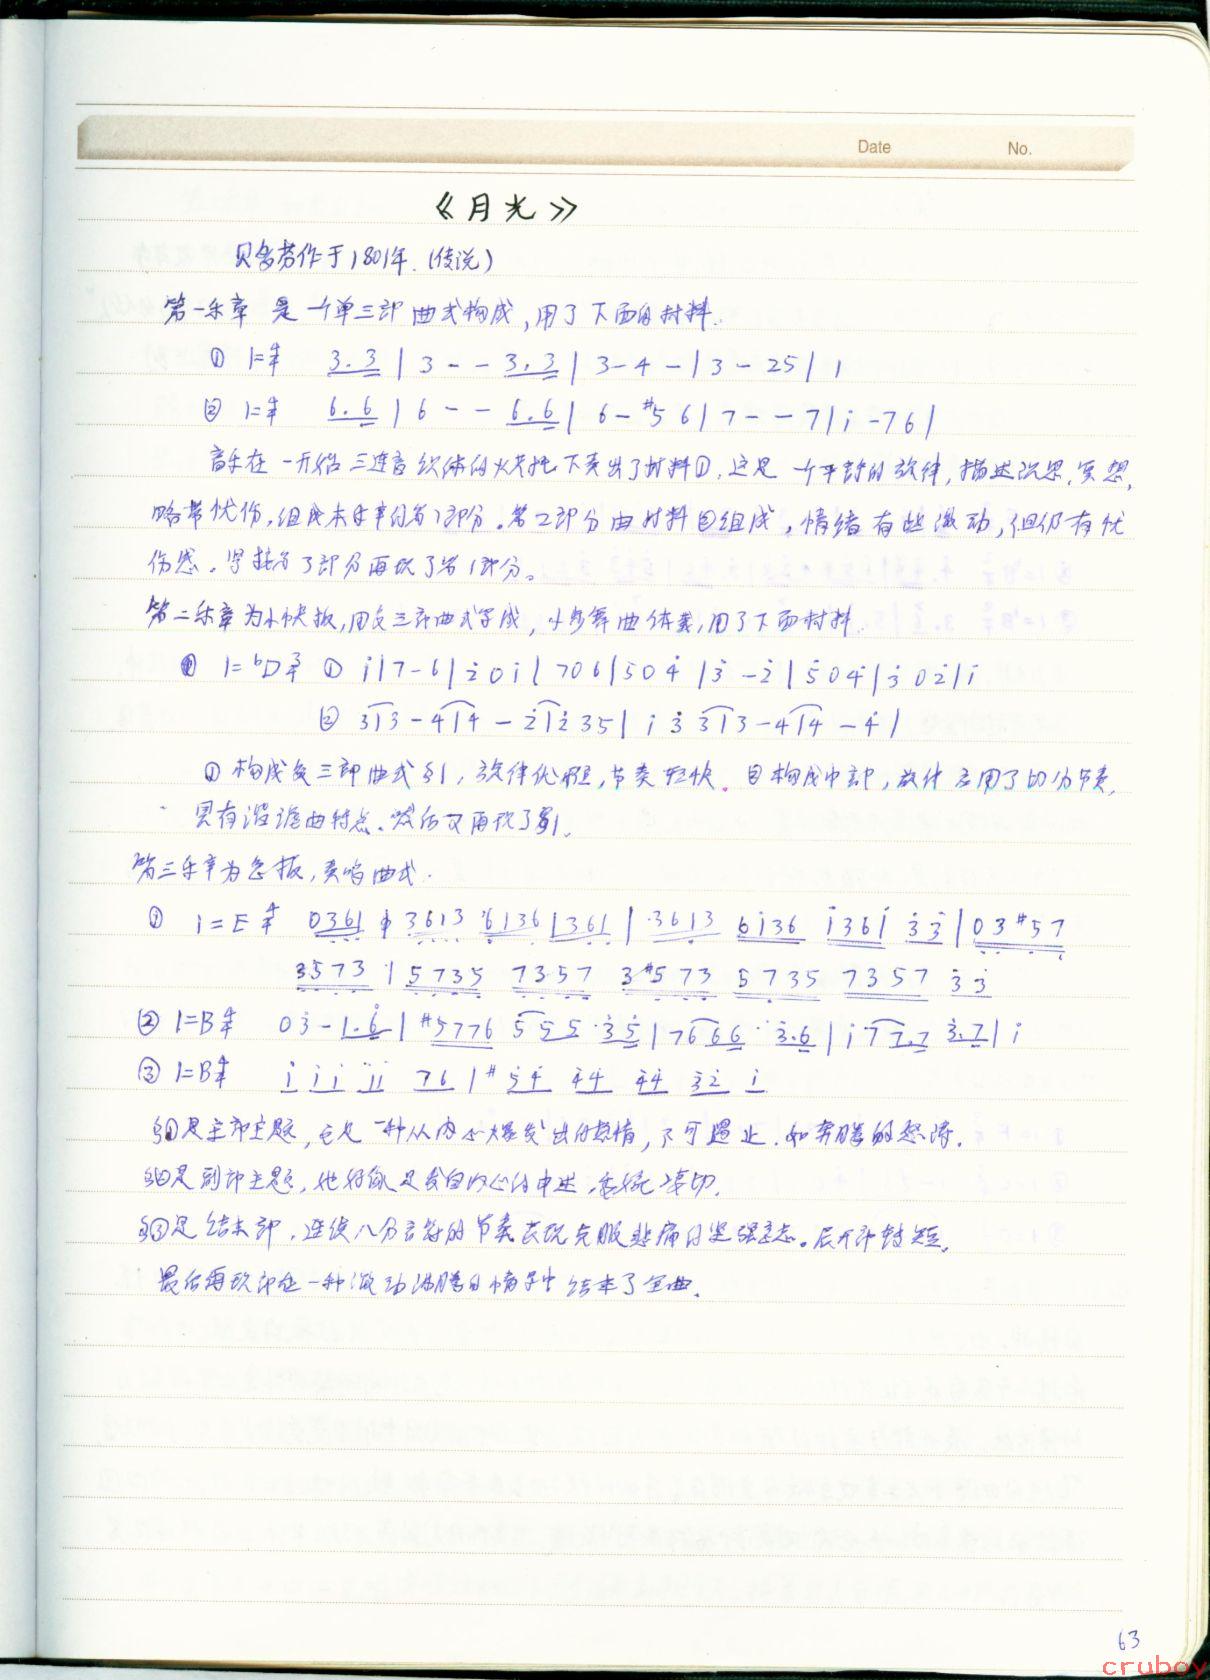 Date No.
《月光》
贝多芬作于1801年.(传说)
第一乐章 是一个单三部曲式构成,用了下面的材料.
① 1=# 3.3 | 3 - - 3.3 | 3 - 4 - | 3 - 25 | 1
② 1=# 6.6 | 6 - - 6.6 | 6 - #5 6 | 7 - - 7 | i - 76 |
音乐在一开始三连音织体的 下奏出了材料①,这是一个平静的旋律,描述沉思,冥想,
略带忧伤,组成本乐章的第1部分。第2部分由材料②组成,情绪有些激动,但仍有忧
伤感。紧接着 部分再现了第1部分。
第二乐章为小快板,用复三部曲式写成,小步舞曲体裁,用了下面材料.
1=bD ① i | 7 - 6 | 2 0 i | 7 0 6 | 5 0 4 | 3 - 2 | 5 0 4 | 3 0 2 | i
② 3 | 3 - 4 | 4 - 2 | 2 3 5 | i 3 3 | 3 - 4 | 4 - 4 |
①构成复三部曲式 1,旋律优雅,节奏轻快。②构成中部,旋律应用了切分节奏,
具有谐谑曲特点.然后又再现了 1.
第三乐章为急板,奏鸣曲式.
① 1=E 0361 3613 6136 1361 | 3613 6136 1361 3 3 | 03#57
3573 | 5735 7357 3#573 5735 7357 3 3
② 1=B 03 - 1.6 | #5776 555 35 | 7666 3.6 | i 77.7 3.7 | i
③ 1=B i i i ii 76 | #54 44 44 32 i
①是主部主题,它是一种从内心爆发出的热情,不可遏止.如奔腾的怒涛.
②是副部主题,她好像是发自内心的申述,委婉凄切.
③是结束部,连续八分音符的节奏表现克服悲痛的坚强意志。展开部较短.
最后再现部在一种激动沸腾的情 中结束了全曲.
63
cruboy